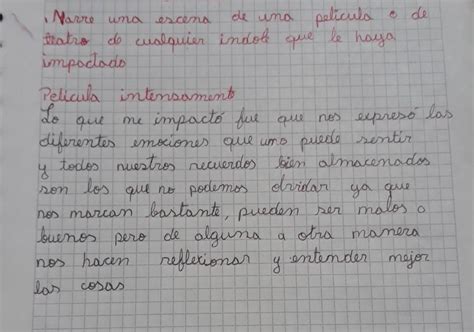 . Narre una escena de una pelicula o de
teatro de cualquier indole que le haya
impactado
Pelicula intensamente
Lo que me impactó fue que nos expresó las
diferentes emociones que uno puede sentir
y todos nuestros recuerdos bien almacenados
son los que no podemos olvidar ya que
nos marcan bastante, pueden ser malos o
buenos pero de alguna a otra manera
nos hacen reflexionar y entender mejor
las cosas